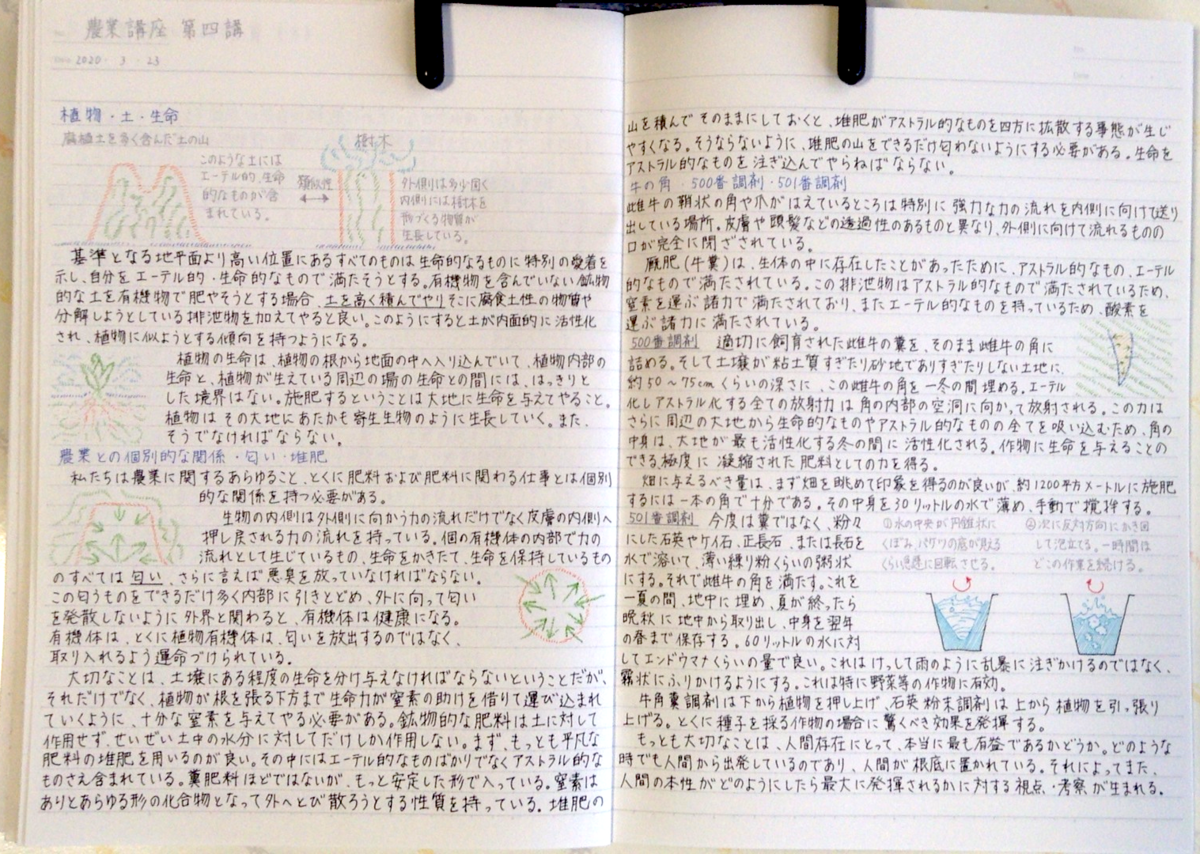 農業講座 第四講
Date 2020・3・23
植物・土・生命
腐植土を多く含んだ土の山
このような土には
エーテル的、生命
的なものが含
まれている。
類似性
樹木
外側は多少固く
内側には樹木を
形づくる物質が
生長している。
基準となる地平面より高い位置にあるすべてのものは生命的なるものに特別の愛着を
示し、自分をエーテル的・生命的なもので満たそうとする。有機物を含んでいない鉱物
的な土を有機物で肥やそうとする場合、土を高く積んでやりそこに腐食土性の物質や
分解しようとしている排泄物を加えてやると良い。このようにすると土が内面的に活性化
され、植物に似ようとする傾向を持つようになる。
植物の生命は、植物の根から地面の中へ入り込んでいて、植物内部の
生命と、植物が生えている周辺の場の生命との間には、はっきりと
した境界はない。施肥するということは大地に生命を与えてやること。
植物はその大地にあたかも寄生生物のように生長していく。また、
そうでなければならない。
農業との個別的な関係・匂い・堆肥
私たちは農業に関するあらゆること、とくに肥料および肥料に関わる仕事とは個別
的な関係を持つ必要がある。
生物の内側は外側に向かう力の流れだけでなく皮膚の内側へ
押し戻される力の流れを持っている。個の有機体の内部で力の
流れとして生じているもの、生命をかきたて、生命を保持しているもの
のすべては匂い、さらに言えば悪臭を放っていなければならない。
この匂うものをできるだけ多く内部に引きとどめ、外に向って匂い
を発散しないように外界と関わると、有機体は健康になる。
有機体は、とくに植物有機体は、匂いを放出するのではなく、
取り入れるよう運命づけられている。
大切なことは、土壌にある程度の生命を分け与えなければならないということだが、
それだけでなく、植物が根を張る下方まで生命力が窒素の助けを借りて運び込まれ
ていくように、十分な窒素を与えてやる必要がある。鉱物的な肥料は土に対して
作用せず、せいぜい土中の水分に対してだけしか作用しない。まず、もっとも平凡な
肥料の堆肥を用いるのが良い。その中にはエーテル的なものばかりでなくアストラル的な
ものさえ含まれている。糞肥料ほどではないが、もっと安定した形で入っている。窒素は
ありとあらゆる形の化合物となって外へとび散ろうとする性質を持っている。堆肥の
山を積んでそのままにしておくと、堆肥がアストラル的なものを四方に拡散する事態が生じ
やすくなる。そうならないように、堆肥の山をできるだけ匂わないようにする必要がある。生命を
アストラル的なものを注ぎ込んでやらねばならない。
牛の角・500番調剤・501番調剤
雌牛の鞘状の角や爪がはえているところは特別に強力な力の流れを内側に向けて送り
出している場所。皮膚や頭髪などの透過性のあるものと異なり、外側に向けて流れるものの
口が完全に閉ざされている。
厩肥(牛糞)は、生体の中に存在したことがあったために、アストラル的なもの、エーテル
的なもので満たされている。この排泄物はアストラル的なもので満たされているため、
窒素を運ぶ諸力で満たされており、またエーテル的なものを持っているため、酸素を
運ぶ諸力に満たされている。
500番調剤 適切に飼育された雌牛の糞を、そのまま雌牛の角に
詰める。そして土壌が粘土質すぎたり砂地でありすぎたりしない土地に、
約50〜75cmくらいの深さに、この雌牛の角を一冬の間埋める。エーテル
化しアストラル化する全ての放射力は角の内部の空洞に向かって放射される。この力は
さらに周辺の大地から生命的なものやアストラル的なものの全てを吸い込むため、角の
中身は、大地が最も活性化する冬の間に活性化される。作物に生命を与えることの
できる極度に凝縮された肥料としての力を得る。
畑に与えるべき量は、まず畑を眺めて印象を得るのが良いが、約1200平方メートルに施肥
するには一本の角で十分である。その中身を30リットルの水で薄め、手動で撹拌する。
501番調剤 今度は糞ではなく、粉々
にした石英やケイ石、正長石、または長石を
水で溶いて、薄い練り粉くらいの粥状
にする。それで雌牛の角を満たす。これを
一夏の間、地中に埋め、夏が終ったら
晩秋に地中から取り出し、中身を翌年
の春まで保存する。60リットルの水に対
①水の中央が円錐状に
くぼみバケツの底が見える
くらい急速に回転させる。
②次に反対方向にかき回
して泡立てる。一時間ほ
どこの作業を続ける。
してエンドウマナくらいの量で良い。これはけっして雨のように乱暴に注ぎかけるのではなく、
霧状にふりかけるようにする。これは特に野菜等の作物に有効。
牛角糞調剤は下から植物を押し上げ、石英粉末調剤は上から植物を引っ張り
上げる。とくに種子を採る作物の場合に驚くべき効果を発揮する。
もっとも大切なことは、人間存在にとって、本当に最も有益であるかどうか。どのような
時でも人間から出発しているのであり、人間が根底に置かれている。それによってまた、
人間の本性がどのようにしたら最大に発揮されるかに対する視点・考察が生まれる。